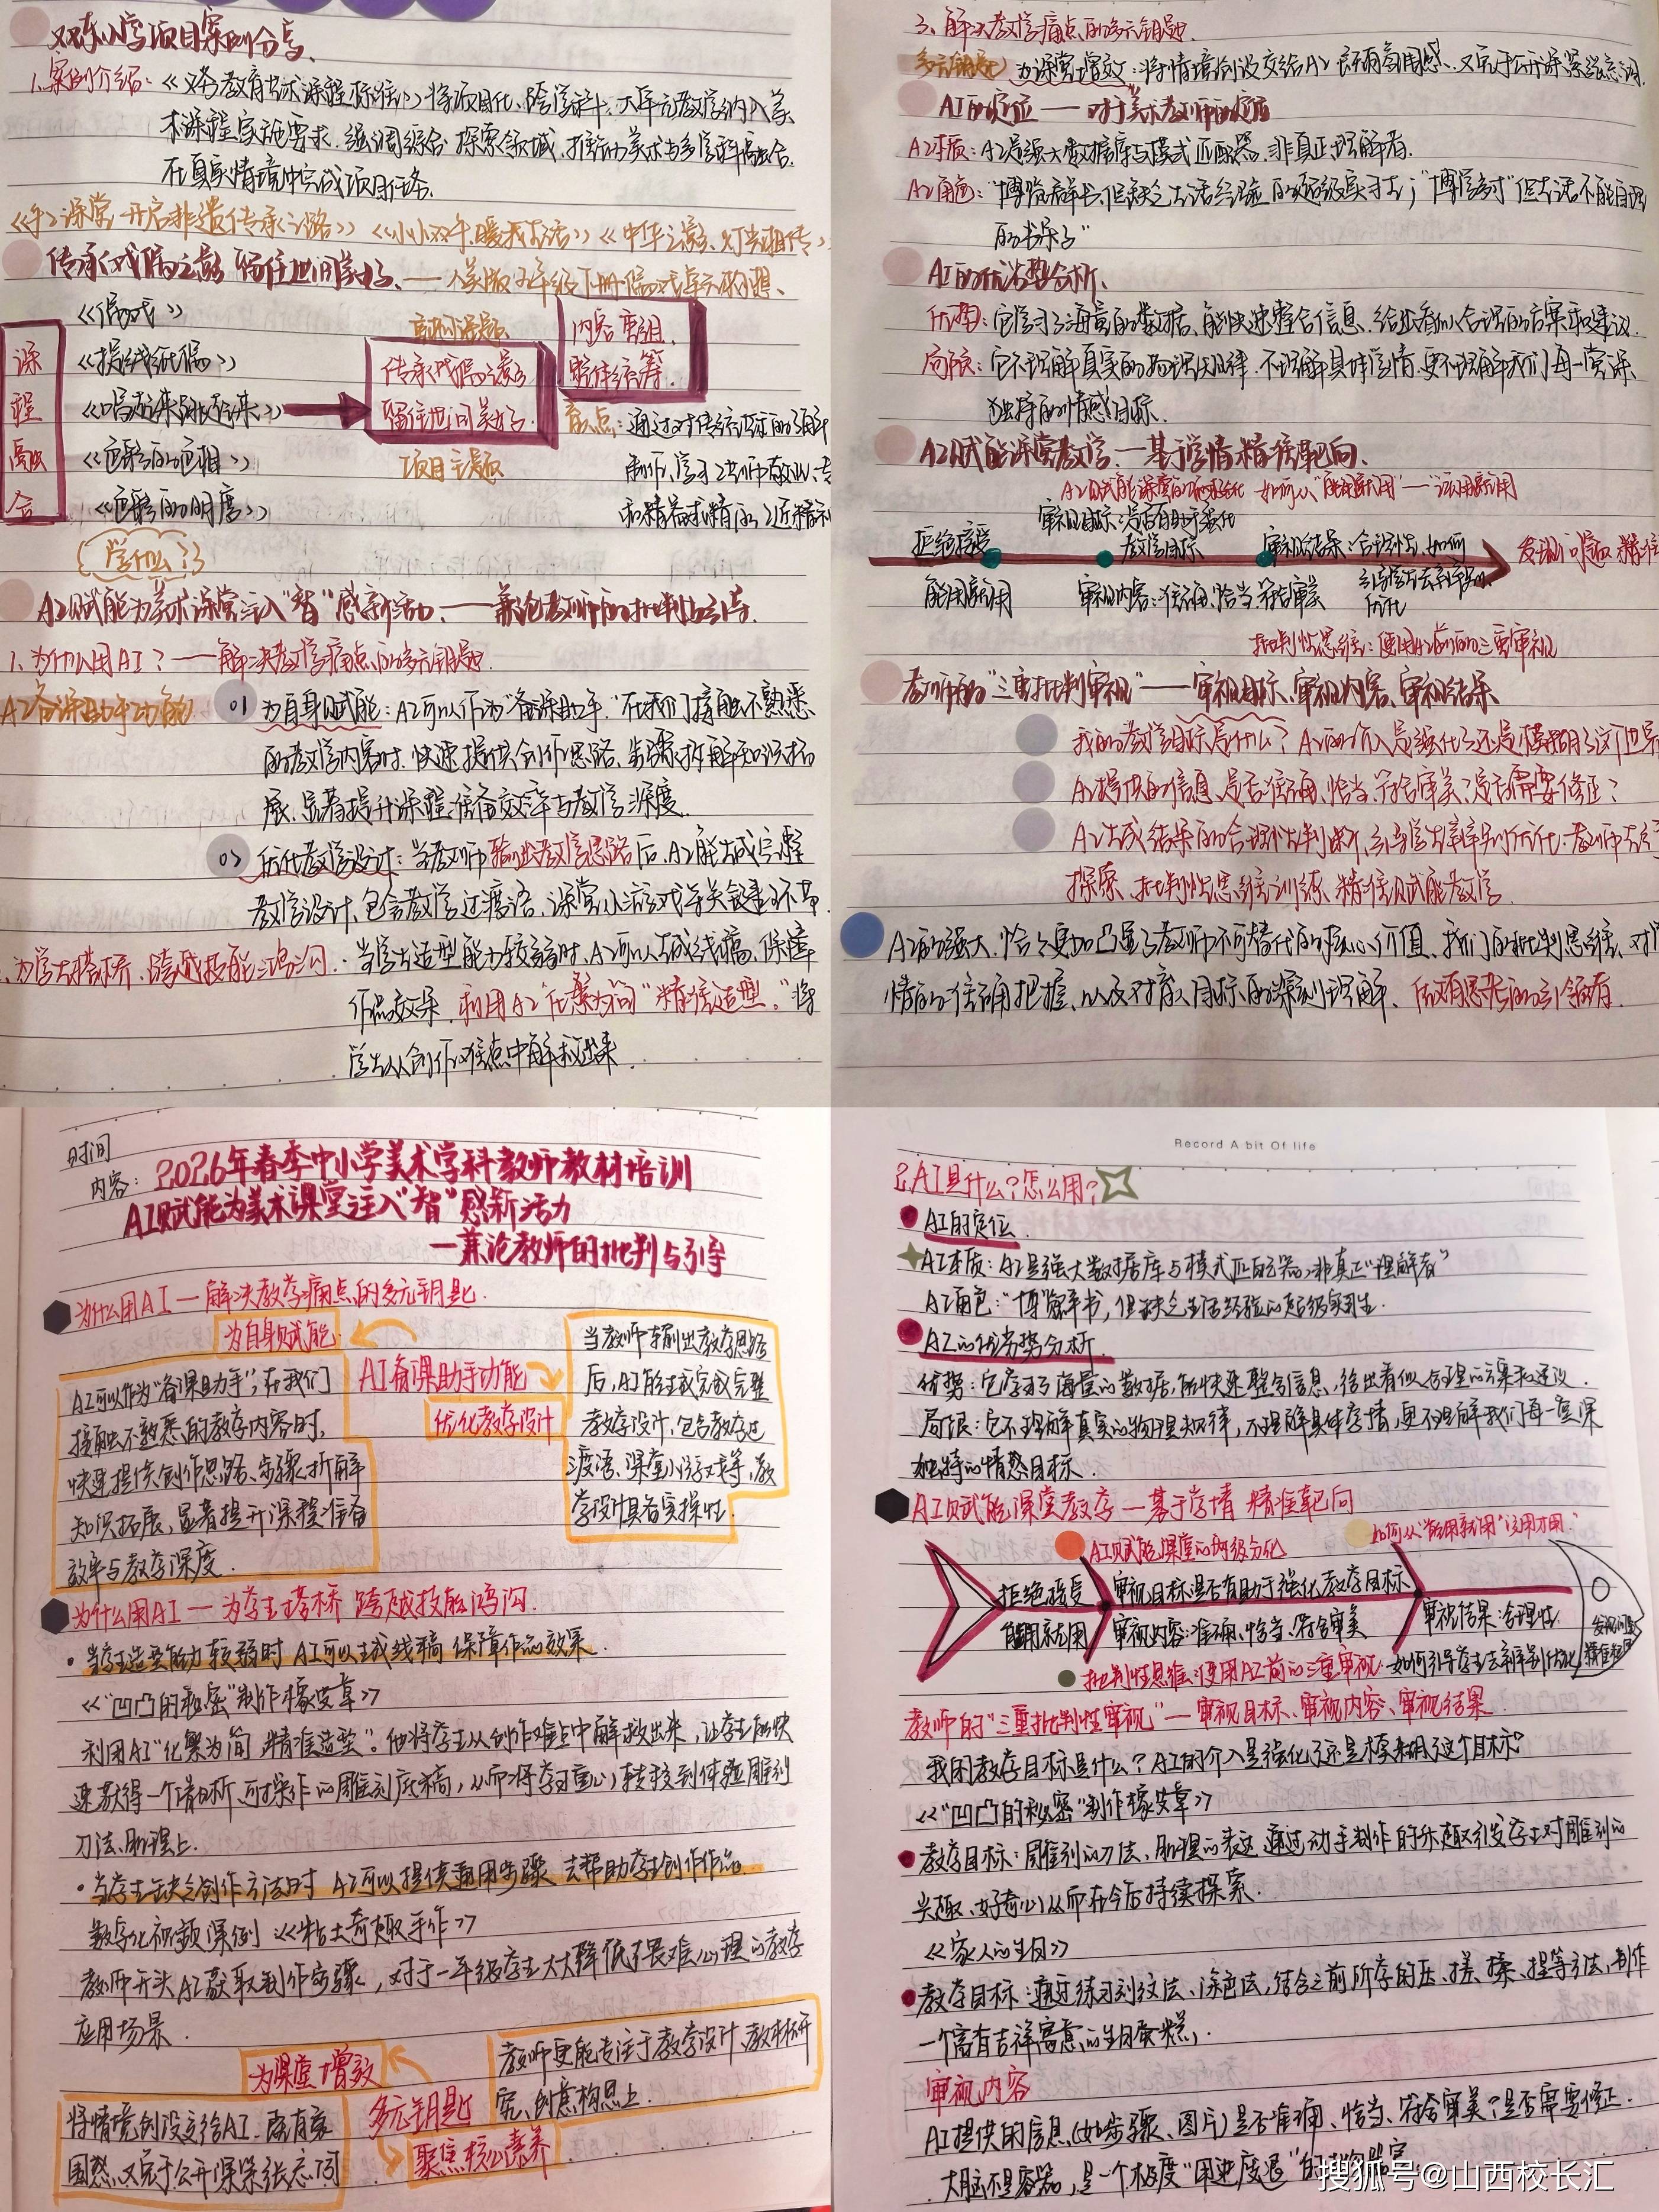 双东小学项目案例分享
1.案例介绍:《义务教育艺术课程标准》将项目化、跨学科、大单元教学纳入美
术课程实施要求,强调综合·探索领域,推动美术与多学科融合,
在真实情境中完成项目任务.
《手工课堂 开启非遗传承之路》《小小双手,暖我生活》《中华之彩、灯出相传》
传承戏偶之彩 留住世间美好. ——人美版 年级下册偶戏单元构想.
课程融合
《偶戏》
《提线纸偶》
《唱起来跳起来》
《色彩的色相》
《色彩的明度》
传承戏偶之彩
留住世间美好.
项目主题
内容重组
整体统筹.
学什么??
AI赋能为美术课堂注入“智”感新活力 ——兼论教师的批判与引导.
1.为什么用AI?——解决教学痛点的多元钥匙.
AI备课助手功能
01 为自身赋能:AI可以作为“备课助手.”在我们接触不熟悉
的教学内容时.快速提供创作思路、步骤拆解和知识拓
展、显著提升课程准备效率与教学深度.
02 优化教学设计:当教师输出教学思路后,AI能生成完整
教学设计、包含教学过渡语、课堂小游戏等关键环节.
为学生搭桥、跨越技能鸿沟.:当学生造型能力较弱时,AI可以生成线稿、保障
作品效果.利用AI“化繁为简”“精准造型.”将
学生从创作难点中解救出来
3.解决教学痛点的多元钥匙.
多元钥匙 为课堂增效:将情境创设交给AI 既有氛围感、又完于公开课紧张忘词.
AI的定位——对于美术教师的定位
AI本质:AI是强大数据库与模式匹配器.非真正理解者.
AI角色:“博览群书,但缺乏生活经验的超级实习生;“博学多才”但生活不能自理
的书呆子”
AI的优劣势分析.
优势:它学习了海量的数据、能快速整合信息.给出看似合理的方案和建议.
局限:它不理解真实的物理规律.不理解具体学情,更不理解我们每一堂课
独特的情感目标.
AI赋能课堂教学——基于学情精准靶向.
AI赋能课堂的两极分化 如何从“能用就用”——“该用就用
审视目标:是否有助于强化
教学目标
拒绝接受
能用就用
审视内容:准确、恰当、符合审美
审视结果:合理性.如何
引导学生去辨别
优化
发现问题 精准
批判性思维:使用AI前的三重审视
教师的“三重批判审视”——审视目标、审视内容、审视结果
我的教学目标是什么?AI的介入是强化了还是模糊了这个目标
AI提供的信息、是否准确、恰当、符合审美?是否需要修正?
AI生成结果的合理性判断,引导学生辨别优化.
探索、批判性思维训练、精准赋能教学
AI的强大,恰恰更加凸显了教师不可替代的核心价值.我们的批判思维、对学
情的准确把握、以及对育人目标的深刻理解. 做有思考的引领者.
时间
内容: 2026年春季中小学美术学科教师教材培训
AI赋能为美术课堂注入“智”感新活力
—兼论教师的批判与引导
为什么用AI—解决教学痛点的多元钥匙.
为自身赋能.
AI可以作为“备课助手”,在我们
接触不熟悉的教学内容时,
快速提供创作思路、步骤拆解
知识拓展,显著提升课程准备
效率与教学深度.
AI备课助手功能
优化教学设计
当教师输出教学思路
后,AI能生成完成完整
教学设计,包含教学过
渡语、课堂小游戏等,教
学设计具备实操性.
为什么用AI—为学生搭桥 跨越技能鸿沟.
·当学生造型能力较弱时 AI可以生成线稿 保障作品效果.
《“凹凸的秘密”制作橡皮章》
利用AI“化繁为简 精准造型”。他将学生从创作难点中解救出来,让学生能快
速获得一个清晰、可操作的雕刻底稿,从而将学习重心转移到体验雕刻
刀法、肌理上.
·当学生缺乏创作方法时 AI可以提供通用步骤 去帮助学生创作作品.
数字化视频课例《粘土奇趣手作》
教师开头AI获取制作步骤,对于一年级学生大大降低了畏难心理的教学
应用场景.
为课堂增效
将情境创设交给AI.既有氛
围感、又完于公开课紧张忘词
多元钥匙
聚焦核心素养
教师更能专注于教学设计、教材研
究、创意构思上.
Record A bit Of life
2.AI是什么?怎么用?
AI的定位.
AI本质:AI是强大数据库与模式匹配器,非真正“理解者”
AI角色:“博览群书,但缺乏生活经验的超级实习生.
AI的优劣势分析.
优势:它学习了海量的数据,能快速整合信息,给出看似合理的方案和建议.
局限:它不理解真实的物理规律,不理解具体学情,更不理解我们每一堂课
独特的情感目标.
AI赋能课堂教学—基于学情 精准靶向
AI赋能课堂的两级分化
如何从“能用就用”“该用才用.”
拒绝接受
能用就用
审视目标是否有助于强化教学目标
审视内容:准确、恰当、符合审美
审视结果:合理性.
如何引导学生去辨别优化
发现问题
精准
批判性思维:使用AI前的三重审视.
教师的“三重批判性审视”—审视目标、审视内容、审视结果.
我的教学目标是什么?AI的介入是强化了还是模糊了这个目标?
《“凹凸的秘密”制作橡皮章》
教学目标:雕刻的刀法、肌理的表达,通过动手制作的乐趣引发学生对雕刻的
兴趣、好奇心从而在今后持续探索.
《家人的生日》
教学目标:通过练习刻纹法、涂色法,结合之前所学的压、搓、揉、捏等方法,制作
一个富有吉祥寓意的生日蛋糕.
审视内容
AI提供的信息(如步骤、图片)是否准确、恰当、符合审美?是否需要修正.
大脑不是容器,是一个极度“用进废退”的
搜狐号@山西校长汇